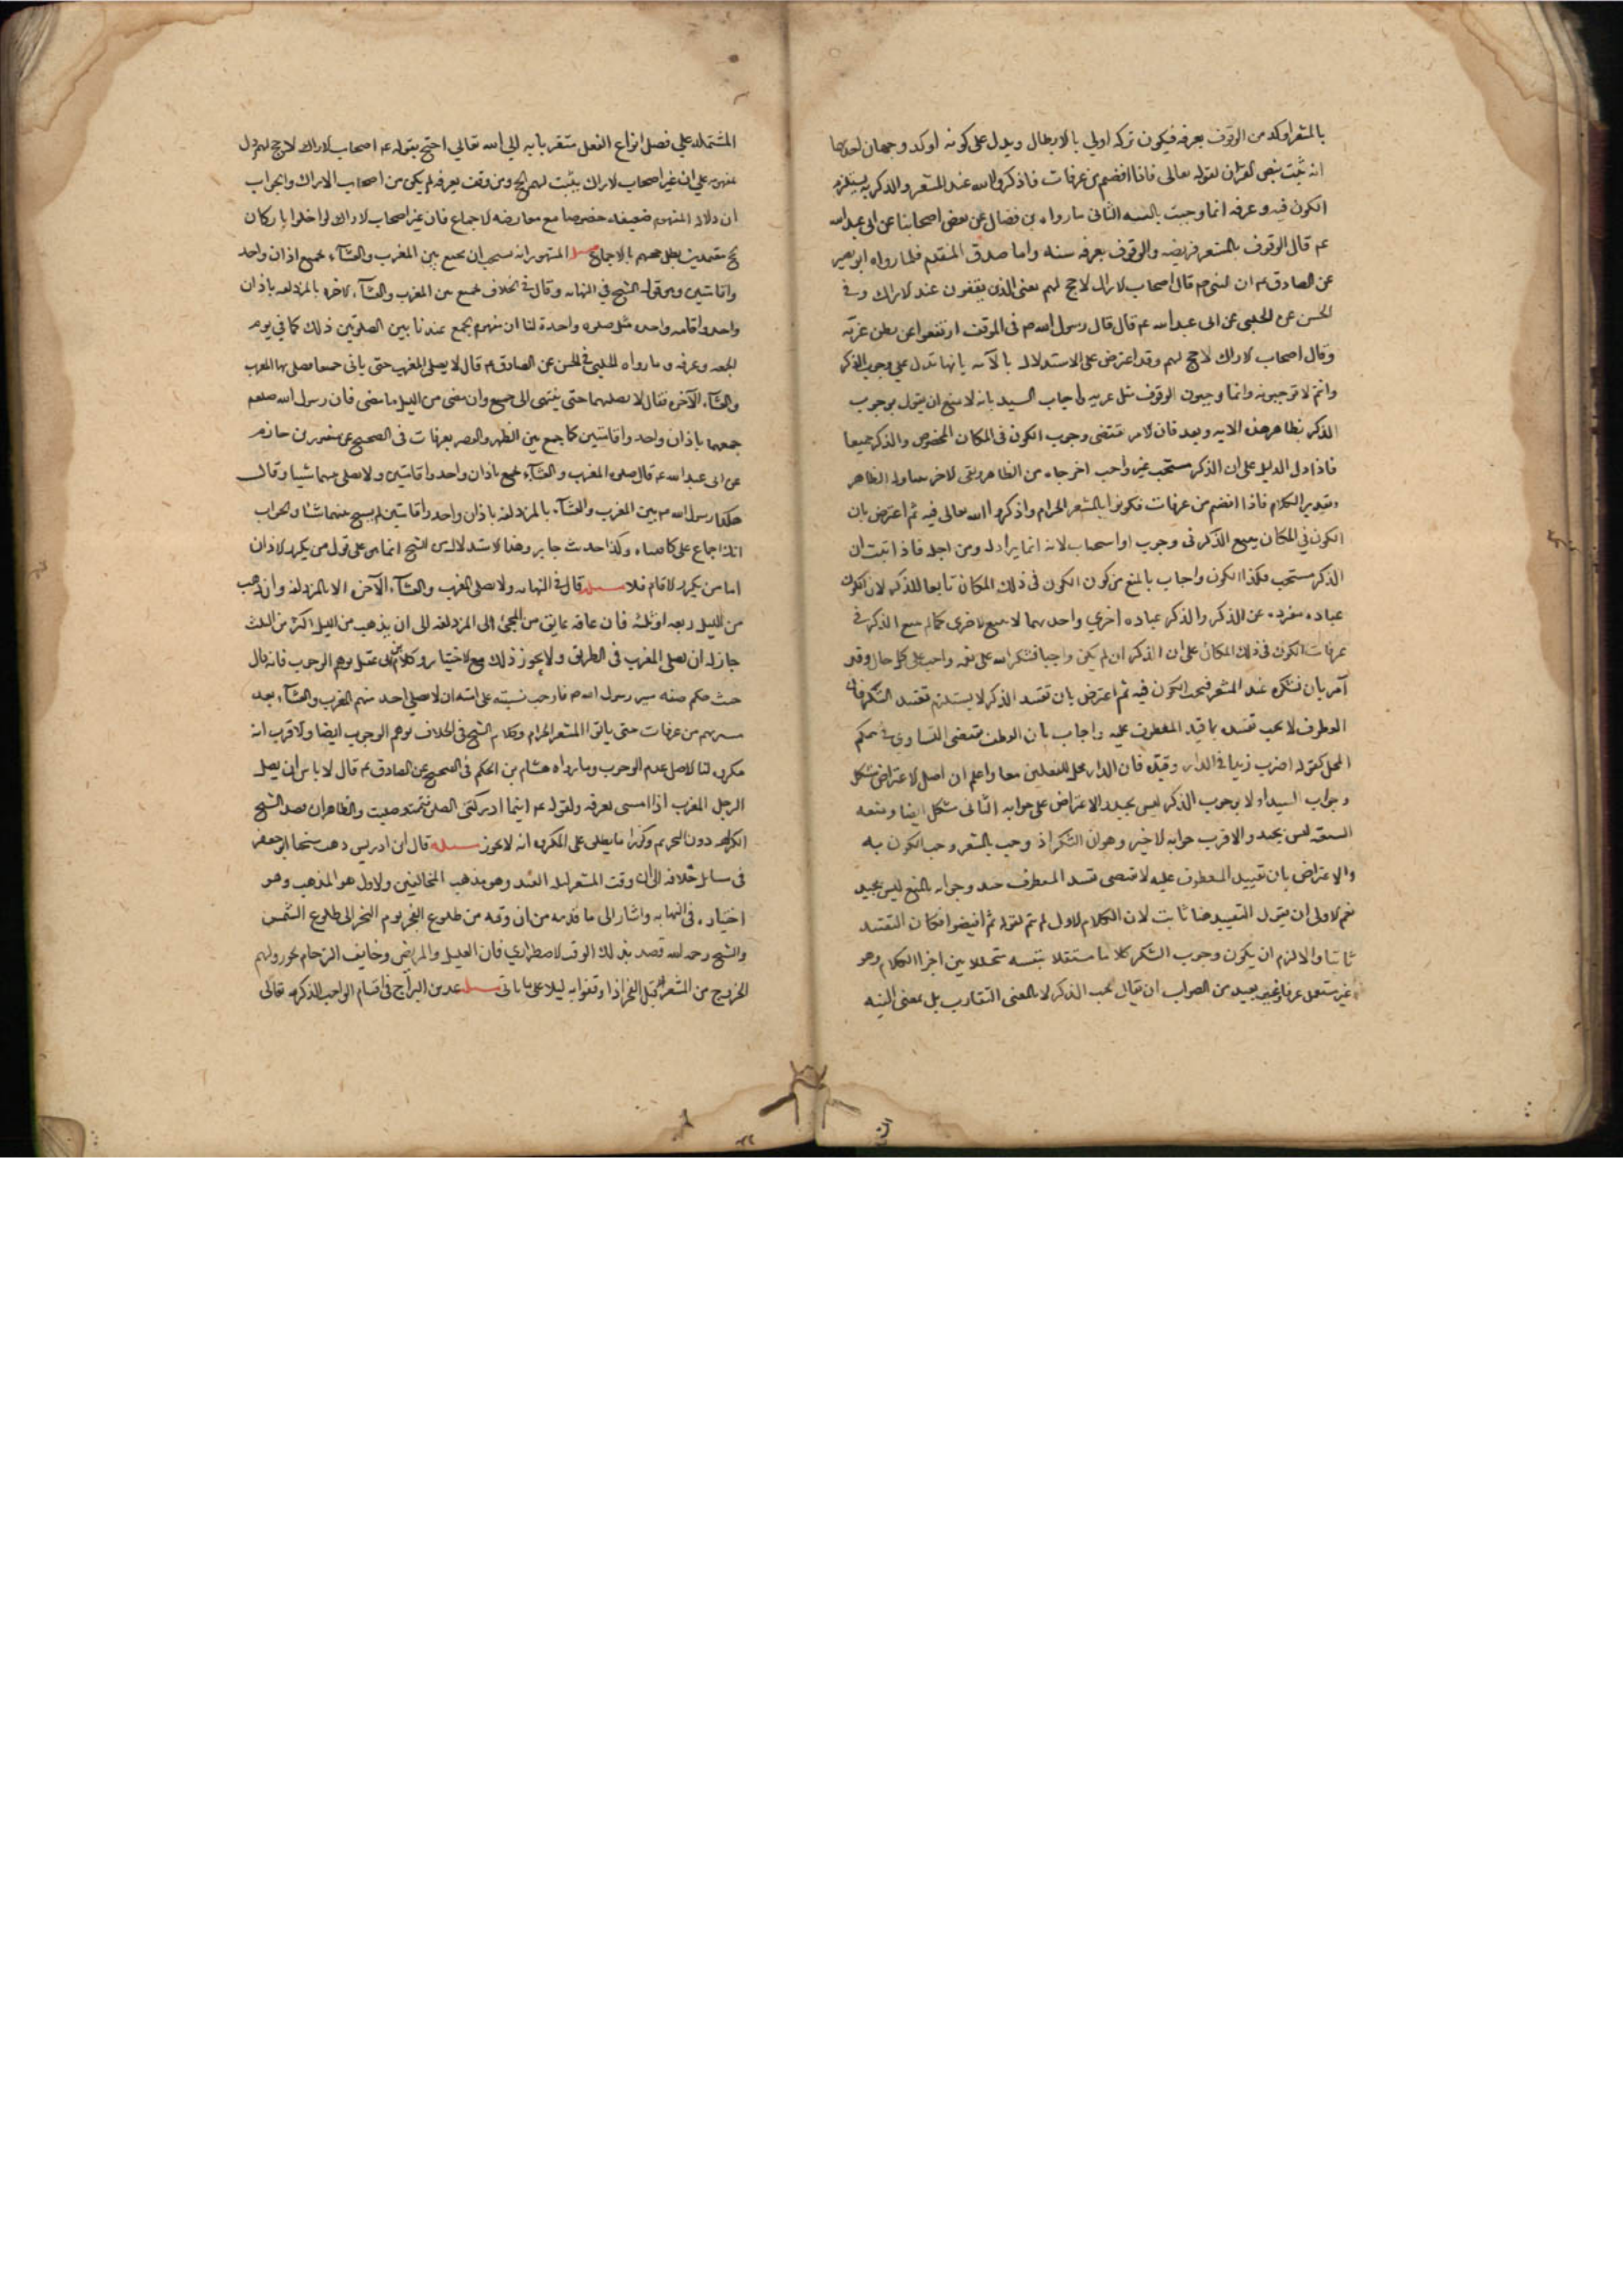 بالمشعر اوكد من الوقوف بعرفه فيكون تركه اولي بالابطال ويدل على كونه اوكد وجهان احدهما
انه ثبت بنص القران لقوله تعالى فاذا افضتم من عرفات فاذكروا الله عند المشعر والذكر به يستلزم
الكون فيه وعرفه انما وجبت بالسنه الثانى ما رواه بن فضال عن بعض اصحابنا عن ابى عبدالله
عم قال الوقوف بالمشعر فريضه والوقوف بعرفه سنه واما صدق المتقدم فلما رواه ابو بصير
عن الصادق عم ان النبى ص قال اصحاب الاراك لا حج لهم يعنى الذين يقفون عند الاراك وفي
الحسن عن الحلبي عن ابى عبدالله عم قال قال رسول الله ص فى الموقف ارتفعوا عن بطن عرنه
وقال اصحاب الاراك لا حج لهم وقد اعترض على الاستدلال بالآيه بانها تدل على وجوب الذكر
وانتم لا توجبونه وانما توجبون الوقوف مثل عرفه واجاب السيد بانه لا يمتنع ان يقول بوجوب
الذكر بظاهر هذه الايه وبعد فان الامر يقتضى وجوب الكون فى المكان المخصوص والذكر جميعا
فاذا دل الدليل على ان الذكر مستحب غير واجب اخرجناه من الظاهر وبقى الاخر يتناوله الظاهر
وتقدير الكلام فاذا افضتم من عرفات فكونوا بالمشعر الحرام واذكروا الله تعالى فيه ثم اعترض بان
الكون في المكان يتبع الذكر فى وجوب او استحباب لانه انما يراد له ومن اجله فاذا ثبت ان
الذكر مستحب فكذا الكون واجاب بالمنع من كون الكون فى ذلك المكان تابعا للذكر لان الكون
عباده مفرده عن الذكر والذكر عباده اخري واحديهما لا يتبع الاخرى كما لم يتبع الذكر فى
عرفات الكون فى ذلك المكان على ان الذكر ان لم يكن واجبا فشكر الله على نعمه واجب على كل حال وقد
امر بان نشكره عند المشعر فيجب الكون فيه ثم اعترض بان تقييد الذكر لا يستلزم تقييد الشكر فان
المعطوف لا يجب تقييده بما قيد المعطوف عليه واجاب بان العطف يقتضى التساوي فى حكم
المحل كقوله اضرب زيدا فى الدار وقيده فان الدار محل للفعلين معا واعلم ان اصل الاعتراض مشكل
وجواب السيد اولا بوجوب الذكر ليس بجيد والاعتراض على جوابه الثانى مشكل ايضا ومنعه
ليس بجيد والاقرب جوابه الاخير وهو ان الشكر اذ وجب بالمشعر وجب الكون به
والاعتراض بان تقييد المعطوف عليه لا يقتضى تقييد المعطوف جيد وجوابه بالمنع ليس بجيد
نعم الاولى ان يقول التقييد هنا ثابت لان الكلام الاول لم يتم لقوله ثم افيضوا فكان التقييد
ثابتا والا لزم ان يكون وجوب الشكر كلاما مستقلا بنفسه متخللا بين اجزا الكلام وهو
غير مستعمل عرفا وغير بعيد من الصواب ان يقال يجب الذكر لا بالمعنى المتعارف بل بمعنى النيه
المشتمله على فصل انواع الفعل متقربا به الى الله تعالى احتج بقوله عم اصحاب الاراك لا حج لهم دل
بمفهومه على ان غير اصحاب الاراك يثبت لهم الحج ومن وقف بعرفه لم يكن من اصحاب الاراك والجواب
ان دلاله المفهوم ضعيفه خصوصا مع معارضه الاجماع فان غير اصحاب الاراك لو اخلوا باركان
الحج متعمدين بطل حجهم بالاجماع مسله المشهور انه يستحب ان يجمع بين المغرب والعشآء بجمع باذان واحد
واقامتين وهو قول الشيخ في النهايه وقال فى الخلاف يجمع بين المغرب والعشآء الاخره بالمزدلفه باذان
واحد واقامه واحده مثل صلوه واحدة لنا ان منهم يجمع عندنا بين الصلوتين ذلك كما فى يوم
الجمعه وعرفه وما رواه الحلبي فى الحسن عن الصادق عم قال لا يصلى المغرب حتى ياتى جمعا فصلى بها المغرب
والعشآء الآخره فقال لا يصليهما حتى ينتهى الى جمع وان مضى من الليل ما مضى فان رسول الله صلعم
جمعهما باذان واحد واقامتين كما جمع بين الظهر والعصر بعرفات فى الصحيح عن منصور بن حازم
عن ابى عبدالله عم قال صلوه المغرب والعشآء بجمع باذان واحد واقامتين ولا يصلى بينهما شيا وقال
هكذا رسول الله ص بين المغرب والعشآء بالمزدلفه باذان واحد واقامتين لم يسبح بينهما شيا والجواب
اجماع على ما قلناه وكذا حديث جابر وهذا الاستدلال من الشيخ انما هو على قول من يكرر الاذان
اما من يكرر الاقامه فلا مسله قال فى النهايه ولا يصلى المغرب والعشآء الآخره الا بالمزدلفه وان ذهب
من الليل ربعه او ثلثه فان عاقه عايق من المجئ الى المزدلفه الى ان يذهب من الليل اكثر من الثلث
جاز له ان يصلى المغرب فى الطريق ولا يجوز ذلك مع الاختيار وكلام ابن ابى عقيل يوهم الوجوب فانه قال
حيث حكم صفه سير رسول الله ص فاوجب بسنته على امته ان لا يصلى احد منهم المغرب والعشآء بعد
مسيرهم من عرفات حتى ياتوا المشعر الحرام وكلام الشيخ فى الخلاف يوهم الوجوب ايضا والاقرب انه
مكروه لنا الاصل عدم الوجوب وما رواه هشام بن الحكم فى الصحيح عن الصادق عم قال لا باس ان يصلى
الرجل المغرب اذا امسى بعرفه ولقوله عم اينما ادركتنى الصلوة تيممت وصليت والظاهر ان قصد الشيخ
الكراهه دون التحريم وكثيرا ما يطلق على المكروه انه لا يجوز مسله قال ابن ادريس ذهب شيخنا ابو جعفر
فى مسائل خلافه الى ان وقت المشعر ليله العيد وهو مذهب المخالفين والاول هو المذهب وهو
اختياره فى النهايه واشار الى ما قدمه من ان وقته من طلوع الفجر يوم النحر الى طلوع الشمس
والشيخ رحمه الله قصد بذلك الوقت الاضطراري فان العليل والمريض وخايف الزحام يجوز لهم
الخروج من المشعر قبل الفجر اذا وقفوا به ليلا على ما ياتى مسله عد بن البراج فى اقسام الواجب الذكر لله تعالى